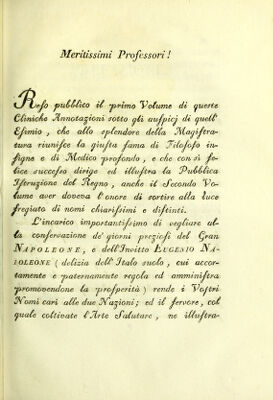 Meritissimi Professori!
Reso pubblico il primo Volume di queste
Cliniche Annotazioni sotto gli auspicj di quell'
Esimio, che allo splendore della Magistra-
tura riunisce la giusta fama di Filosofo in-
signe e di Medico profondo, e che con sì fe-
lice successo dirige ed illustra la Pubblica
Istruzione del Regno, anche il Secondo Vo-
lume aver doveva l'onore di sortire alla luce
fregiato di nomi chiarissimi e distinti.
L'incarico importantissimo di vegliare al-
la conservazione de' giorni preziosi del Gran
NAPOLEONE, e dell'Invitto EUGENIO NA-
POLEONE (delizia dell'Italo suolo, cui accor-
tamente e paternamente regola ed amministra
promovendone la prosperità) rende i Vostri
Nomi cari alle due Nazioni; ed il fervore, col
quale coltivate l'Arte Salutare, ne illustra-